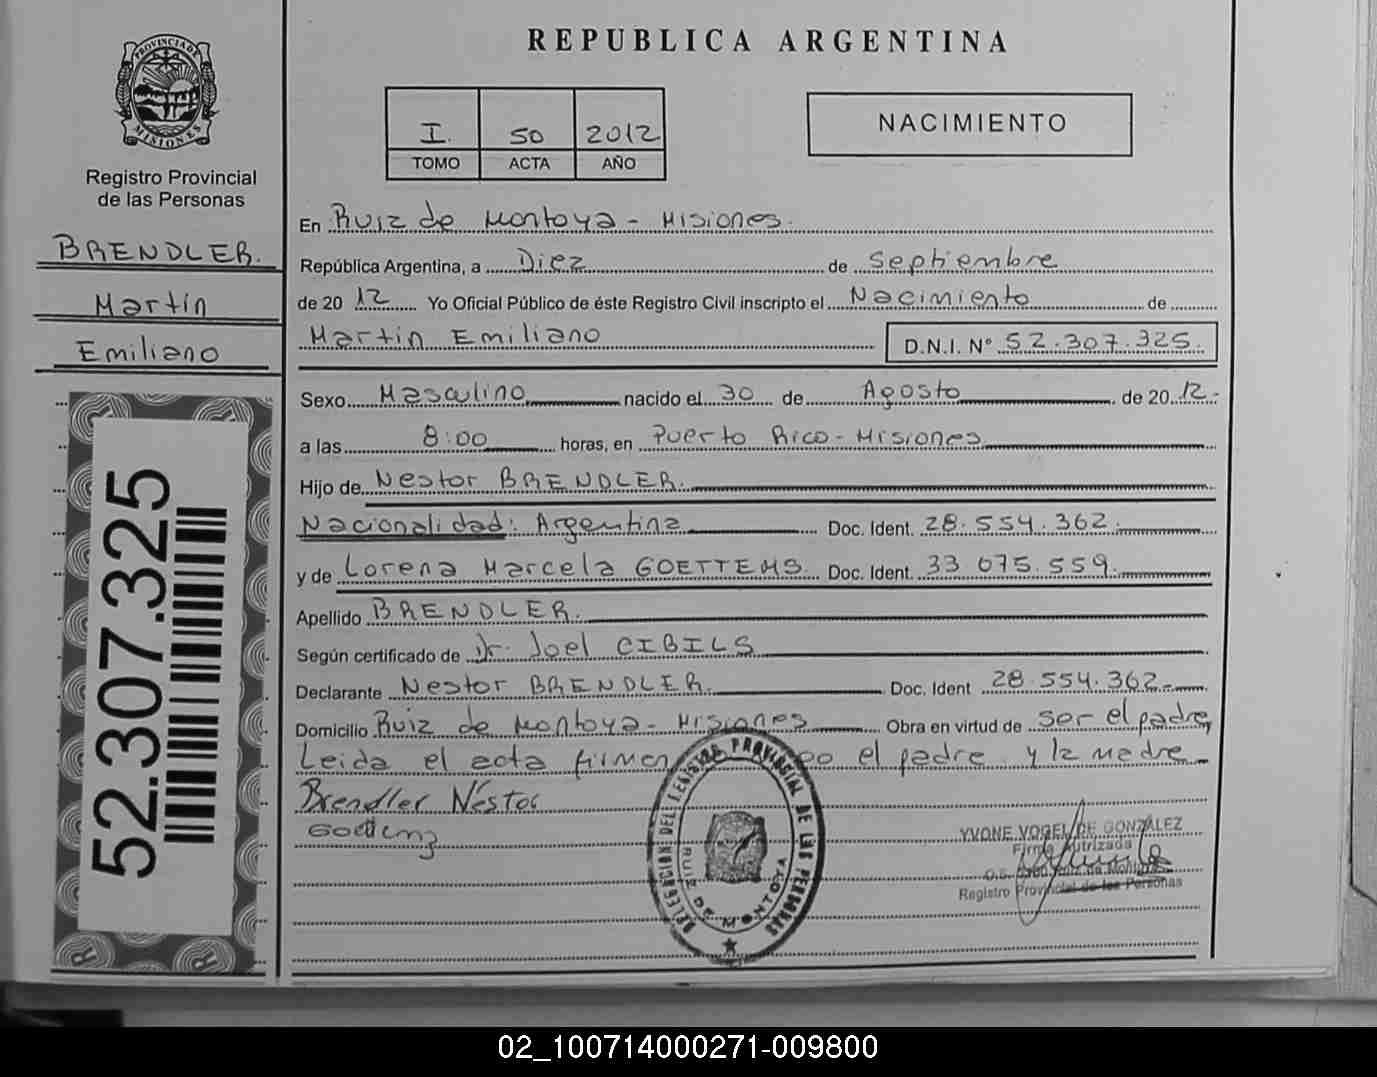 REPUBLICA ARGENTINA
PROVINCIA DE
MISIONES
Registro Provincial
de las Personas
BRENDLER.
Martin
Emiliano
52.307.325
I. 50 2012
TOMO ACTA AÑO
NACIMIENTO
En Ruiz de Montoya - Misiones.
República Argentina, a Diez de Septiembre
de 20 12 Yo Oficial Público de éste Registro Civil inscripto el Nacimiento de
Martin Emiliano D.N.I. N° 52.307.325.
Sexo Masculino nacido el 30 de Agosto de 20 12.-
a las 8:00 horas, en Puerto Rico - Misiones
Hijo de Nestor BRENDLER.
Nacionalidad: Argentina Doc. Ident. 28.554.362.
y de Lorena Marcela GOETTEMS. Doc. Ident. 33 075.559.
Apellido BRENDLER.
Según certificado de Dr. Joel CIBILS
Declarante Nestor BRENDLER. Doc. Ident 28.554.362.-
Domicilio Ruiz de Montoya - Misiones Obra en virtud de ser el padre,
Leida el acta firman el padre y la madre
Brendler Néstor
YVONE VOGEL DE GONZALEZ
Firma Autrizada
Registro Provincial de las Personas
DELEGACION DEL REGISTRO PROVINCIAL DE LAS PERSONAS
RUIZ DE MONTOYA
02_100714000271-009800